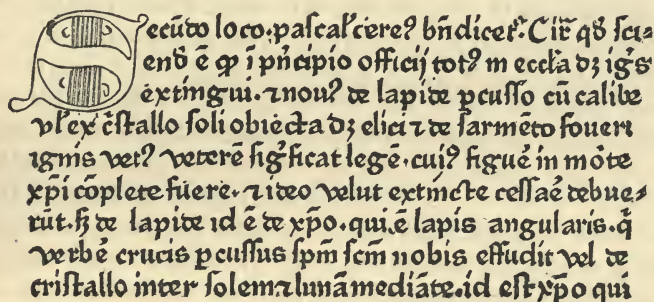 Secūdo loco. pascal' cereꝰ bn̄diceṫ. Cir̄ qd̄ sci-
end̄ ē ꝙ ī pͥncipio officij totꝰ in eccl̄a dꝫ igͥs
extingui. ⁊ nouꝰ de lapide ꝑcusso cū calibe
vl' ex cͥstallo soli obiecta dꝫ elici ⁊ de sarmēto foueri
ignis vetꝰ veterē sigͥficat legē. cuiꝰ figuē in mōte
xp̄i cōplete fuere. ⁊ ideo velut extincte cessaē debue-
rūt. sꝫ de lapide id ē de xp̄o. qui. ē lapis angularis. q̄
verbē crucis ꝑcussus sp̄m scm̄ nobis effudit vel de
cristallo inter solem ⁊ lunā mediāte. id est xp̄o qui